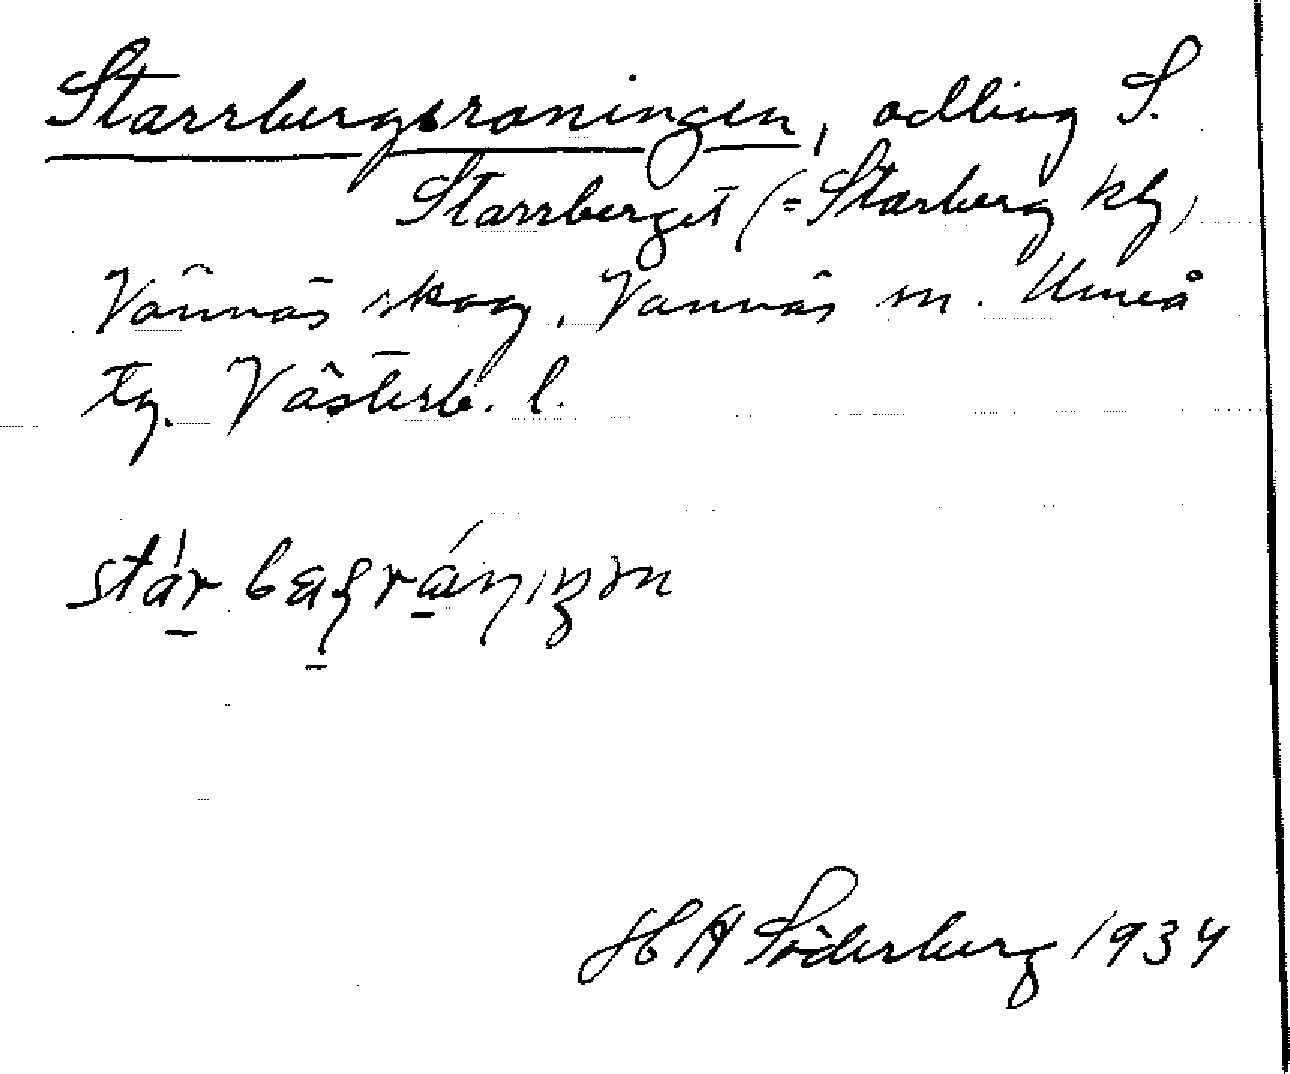 Starrbergsraningen, odling S.
Starrberget (= Starberg kb),
Vännäs skog, Vännäs sn. Umeå
tg. Västerb. l.
H A Söderberg 1934